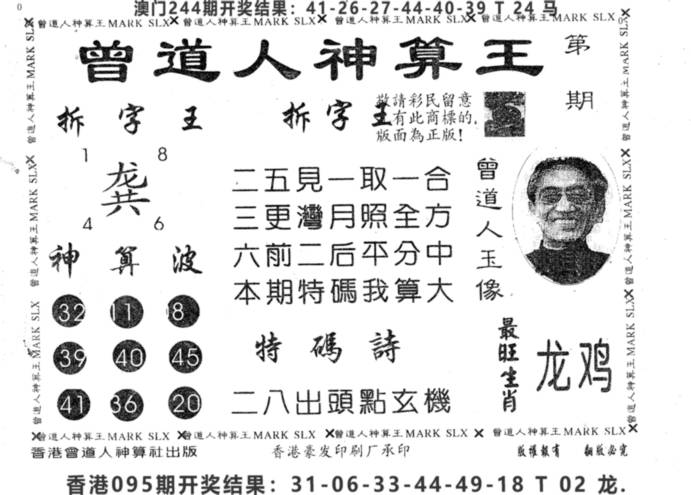 澳门244期开奖结果：41-26-27-44-40-39 T 24 马
曾道人神算王MARK SLX 曾道人神算王MARK SLX 曾道人神算王MARK SLX 曾道人神算王MARK SLX
曾道人神算王
第 期
拆字王
拆字王
敬請彩民留意
有此商標的,
版面為正版!
1 8
龙共
4 6
神算波
32 11 8
39 40 45
41 36 20
二五見一取一合
三更灣月照全方
六前二后平分中
本期特碼我算大
特碼詩
二八出頭點玄機
曾道人玉像
最旺生肖
龙鸡
曾道人神算王MARK SLX 曾道人神算王MARK SLX 曾道人神算王MARK SLX 曾道人神算王MARK SLX
香港曾道人神算社出版
香港豪发印刷厂承印
版權報有 翻版必究
香港095期开奖结果：31-06-33-44-49-18 T 02 龙.